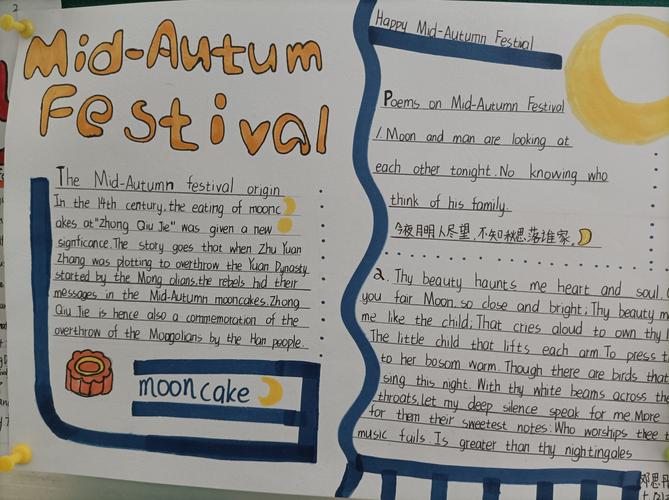 Mid-Autum
Festival
The Mid-Autumn festival origin
In the 14th century, the eating of moonc
akes at "Zhong Qiu Jie" was given a new
signficance. The story goes that when Zhu Yuan
Zhang was plotting to overthrow the Yuan Dynasty
started by the Mong olians. the rebels hid their
messages in the Mid-Autumn mooncakes. Zhong
Qiu Jie is hence also a commemoration of the
overthrow of the Mongolians by the Han people.
mooncake
Happy Mid-Autumn Festival
Poems on Mid-Autumn Festival
1. Moon and man are looking at
each other tonight. No knowing who
think of his family.
今夜月明人尽望,不知秋思落谁家。
2. Thy beauty haunts me heart and soul.
you fair Moon, so close and bright; Thy beauty m
me like the child; That cries aloud to own thy l
The little child that lifts each arm To press t
to her bosom warm. Though there are birds that
sing this night. With thy white beams across the
throats, let my deep silence speak for me. More
for them their sweetest notes: Who worships thee t
music fails. Is greater than thy nightingales